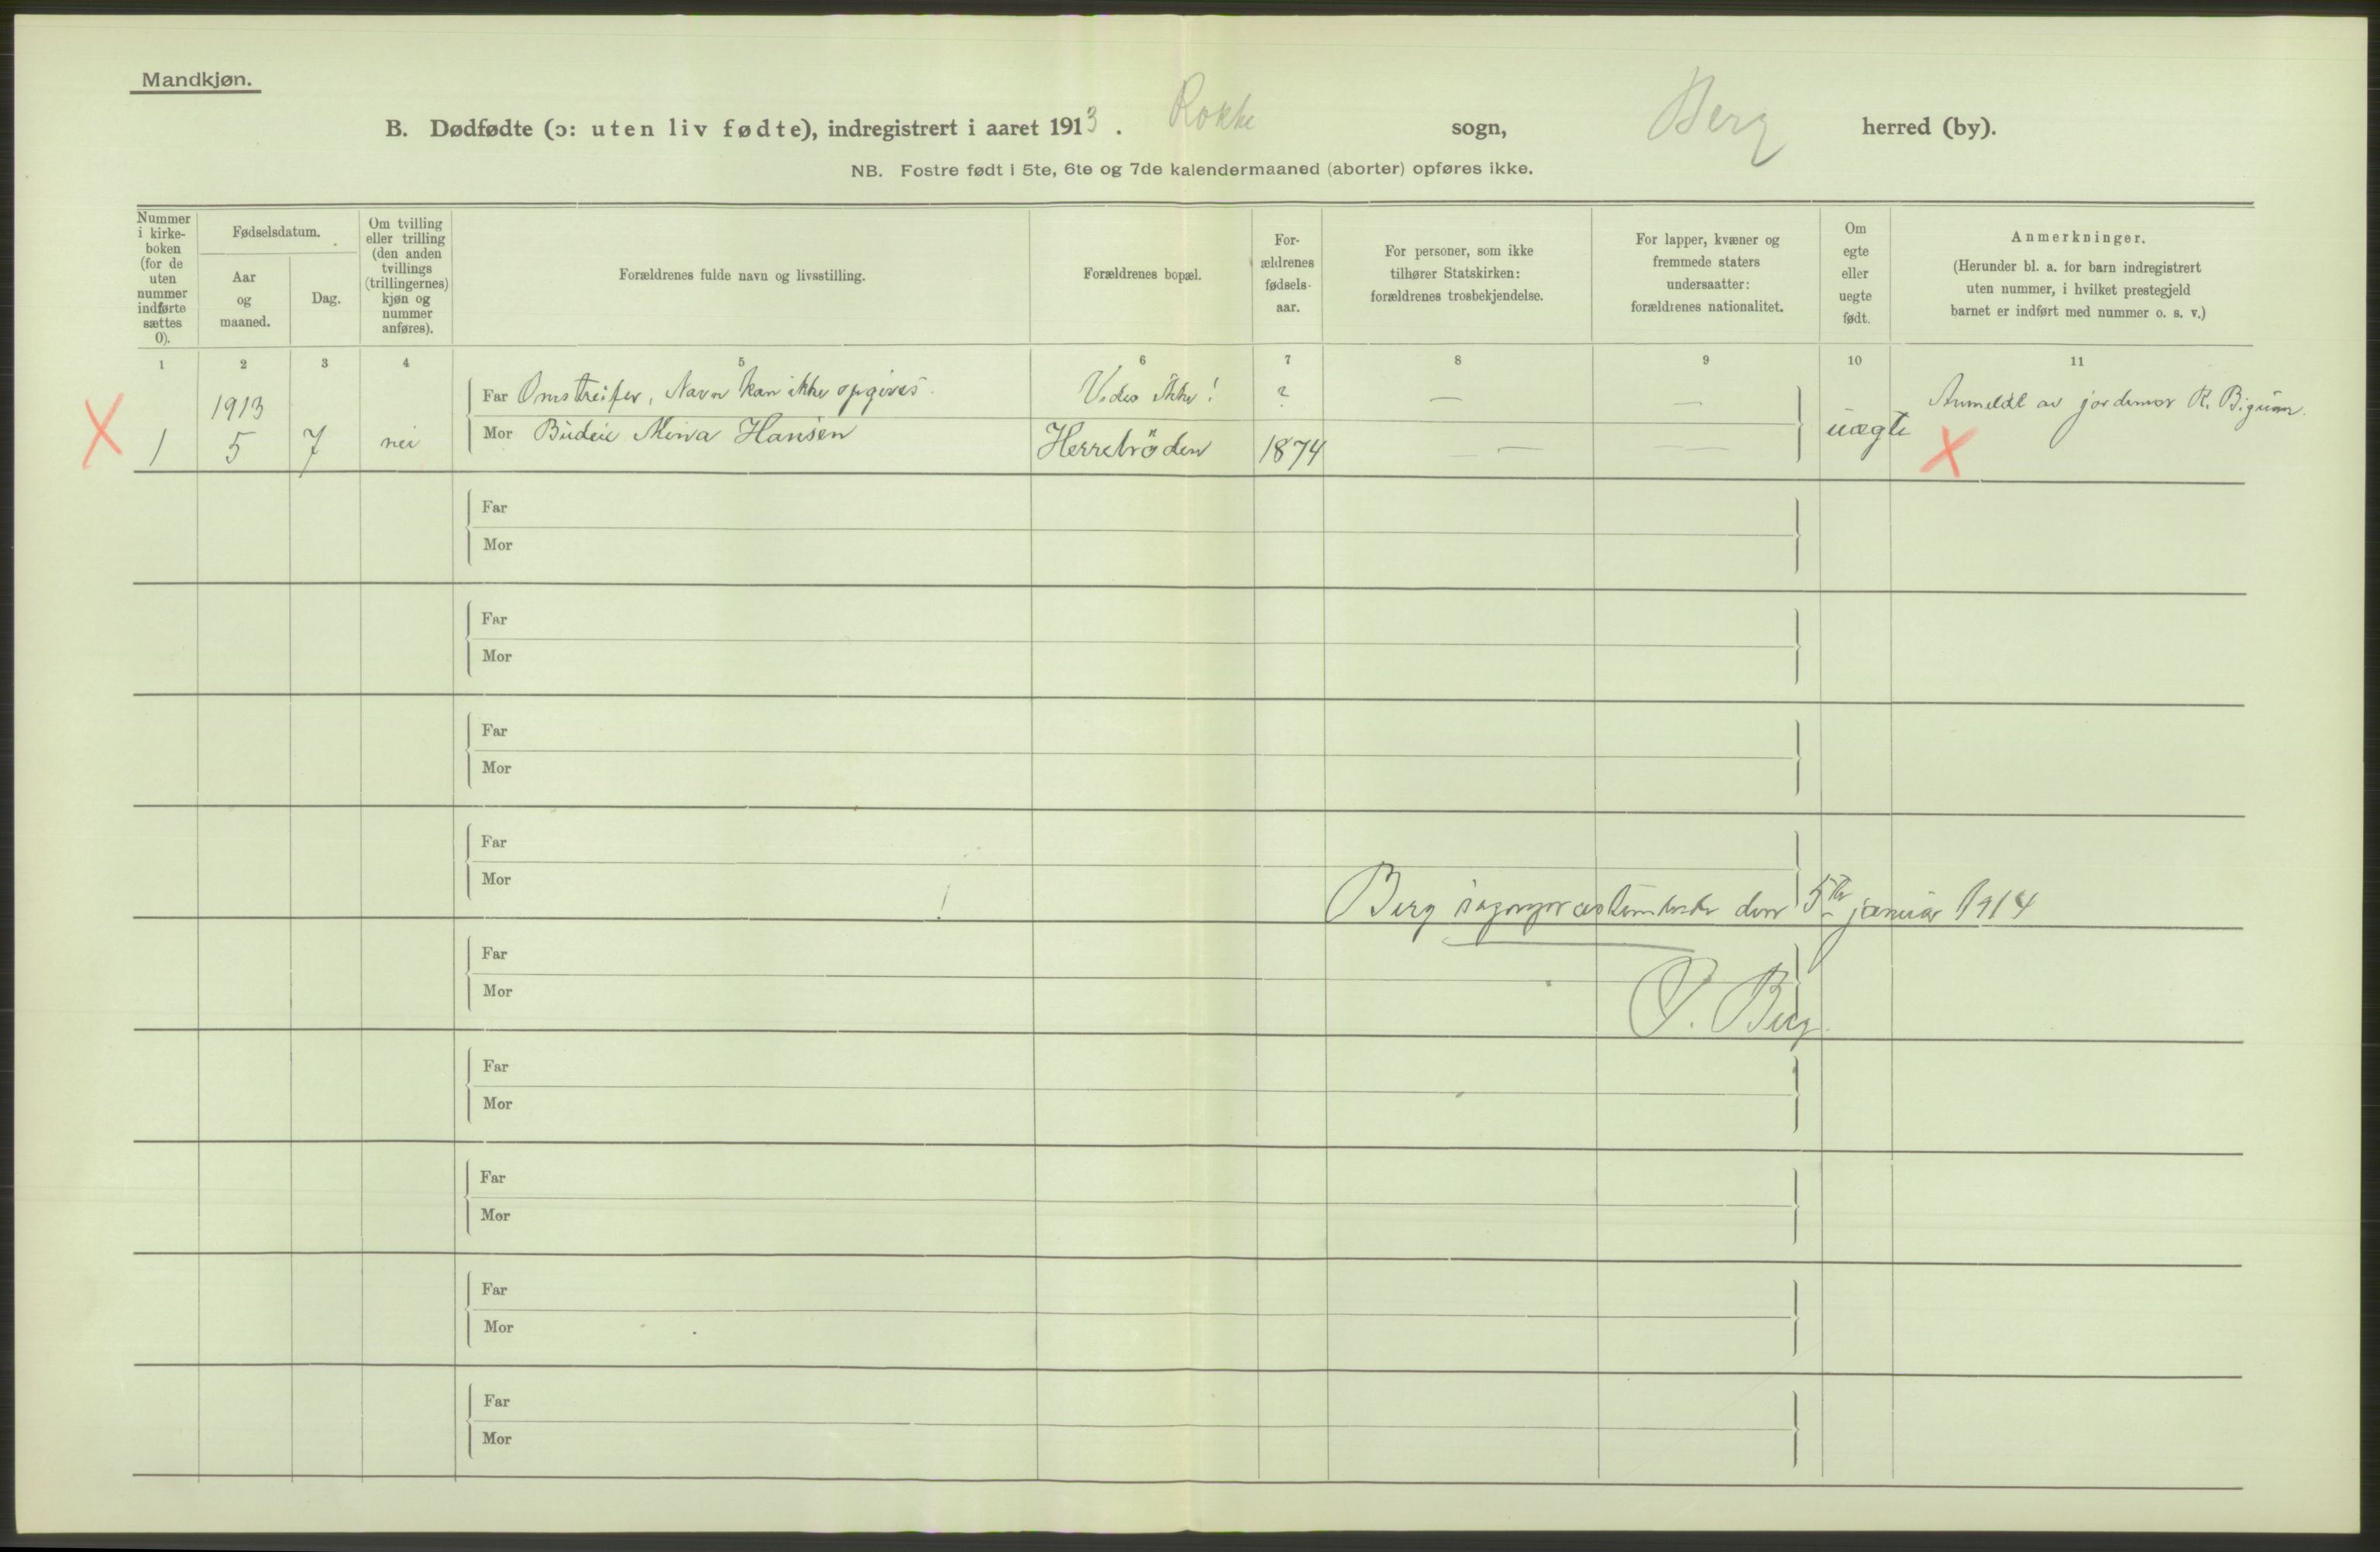 Mandkjøn.
B. Dødfødte (ɔ: uten liv fødte), indregistrert i aaret 1913. Rokke sogn, Berg herred (by).
NB. Fostre født i 5te, 6te og 7de kalendermaaned (aborter) opføres ikke.
Nummer
i kirke-
boken
(for de
uten
nummer
indførte
sættes
0).
Fødselsdatum.
Aar
og
maaned.
Dag.
Om tvilling
eller trilling
(den anden
tvillings
(trillingernes)
kjøn og
nummer
anføres).
Forældrenes fulde navn og livsstilling.
Forældrenes bopæl.
For-
ældrenes
fødsels-
aar.
For personer, som ikke
tilhører Statskirken:
forældrenes trosbekjendelse.
For lapper, kvæner og
fremmede staters
undersaatter:
forældrenes nationalitet.
Om
egte
eller
uegte
født.
Anmerkninger.
(Herunder bl. a. for barn indregistrert
uten nummer, i hvilket prestegjeld
barnet er indført med nummer o. s. v.)
1 2 3 4 5 6 7 8 9 10 11
1913 Far Omstreifer, Navn kan ikke opgives. Vides ikke! ? — — Anmeldt av jordemor R. Bigum.
1 5 7 nei Mor Budeie Mina Hansen Herrebröden 1874 — — uægte
Far
Mor
Far
Mor
Far
Mor
Far
Mor
Berg sogneprestembede den 5te januar 1914
Far
Mor
P. Berg.
Far
Mor
Far
Mor
Far
Mor
Far
Mor